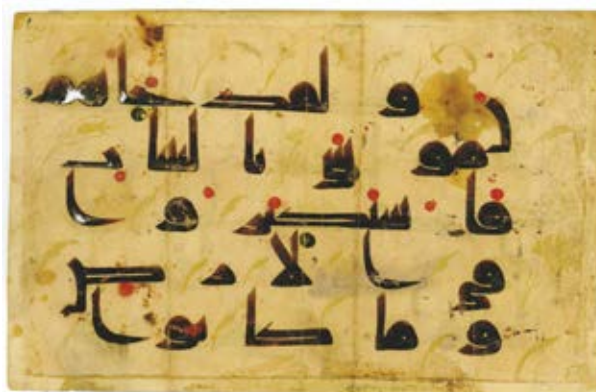 ن و لقد جاهم
موسى با لبينت
فا ستكبر و ا
في ا لا ر ض
و ما كا نوا